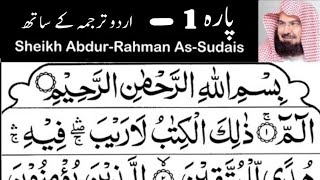 پارہ 1 - اردو ترجمہ کے ساتھ
Sheikh Abdur-Rahman As-Sudais
بِسْمِ اللّٰهِ الرَّحْمٰنِ الرَّحِیْمِ
الٓمّٓ ۚ﴿۱﴾ ذٰلِكَ الْكِتٰبُ لَا رَیْبَ ۛۖ فِیْهِ ۛۚ
هُدًی لِّلْمُتَّقِیْنَ ۙ﴿۲﴾ الَّذِیْنَ یُؤْمِنُوْنَ